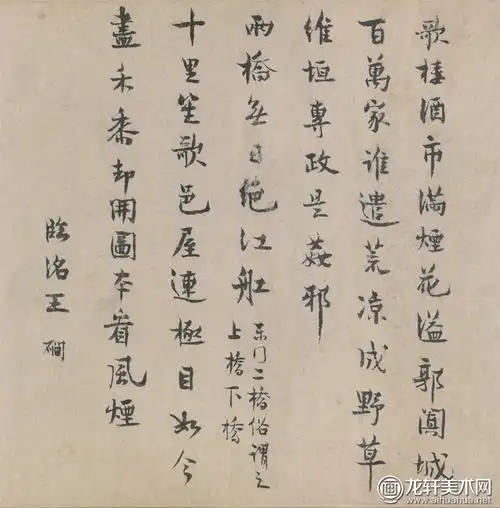 歌樓酒市滿煙花溢郭闐城
百萬家誰遣荒凉成野草
維垣專政是姦邪
兩橋無日絕江舡
東門二橋俗謂之
上橋下橋
十里笙歌邑屋連極目如今
盡禾黍却開圖本看風煙
臨洺王磵
龙轩美术网
www.aihuahua.net